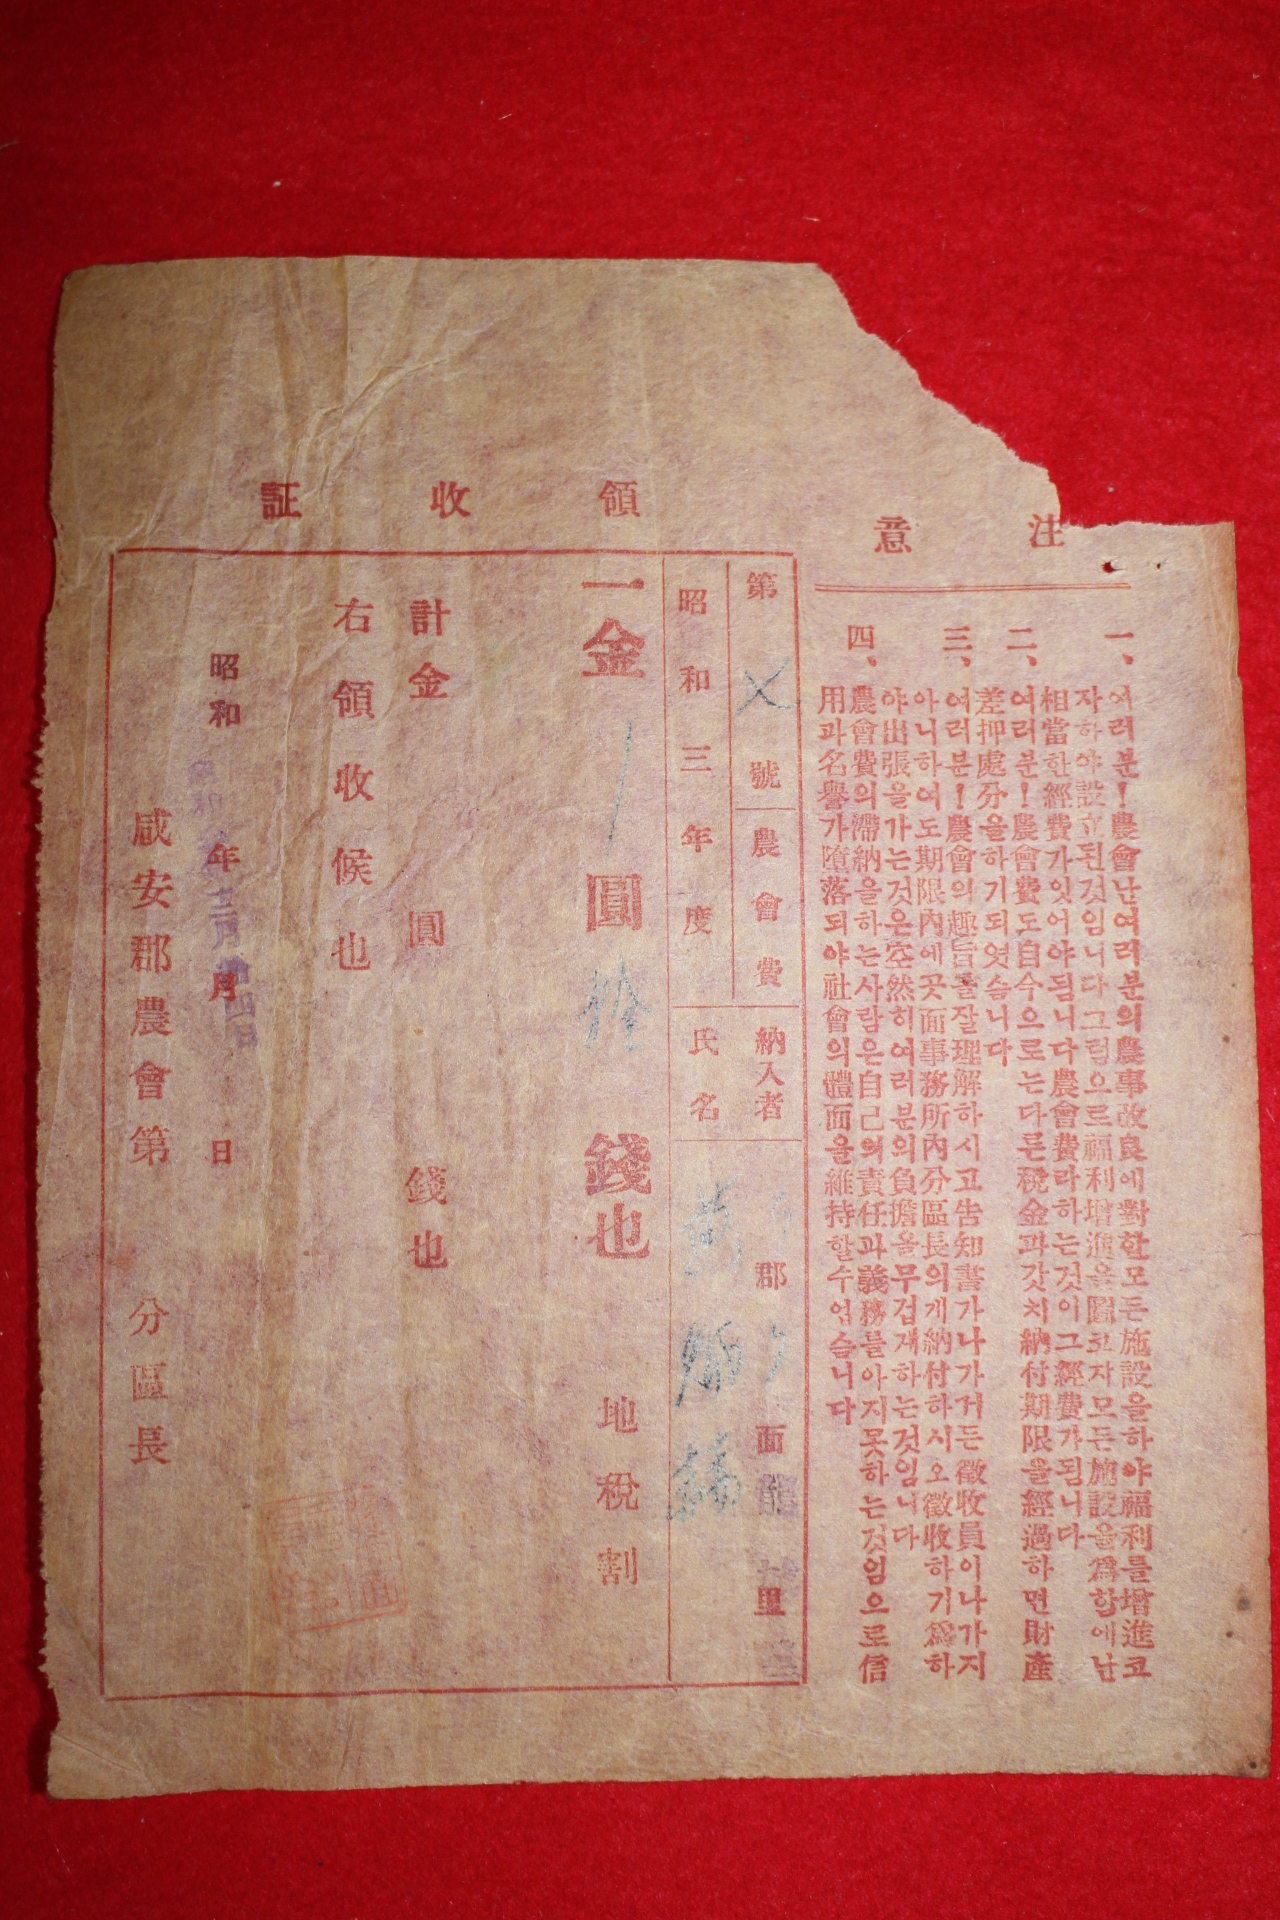 注意
一、여러분!農會난여러분의農事改良에對한모든施設을하야福利를增進코
자하야設立된것임니다그럼으로福利增進을圖코자모든施設을爲함에난
相當한經費가잇어야됨니다農會費라하는것이그經費가됨니다
二、여러분!農會費도自今으로는다른稅金과갓치納付期限을經過하면財產
差押處分을하기되엿슴니다
三、여러분!農會의趣旨를잘理解하시고告知書가나가거든徵收員이나가지
아니하여도期限內에곳面事務所內分區長의게納付하시오徵收하기爲하
야出張을가는것은空然히여러분의負擔을무겁게하는것임니다
四、農會費의滯納을하는사람은自己의責任과義務를아지못하는것임으로信
用과名譽가墮落되야社會의體面을維持할수업슴니다
領收証
第 號 農會費 納入者 郡 面 龍 里
昭和三年度 氏名
一金 圓 拾 錢也 地稅割
計金 圓 錢也
右領收候也
昭和 年 月 日
咸安郡農會第 分區長